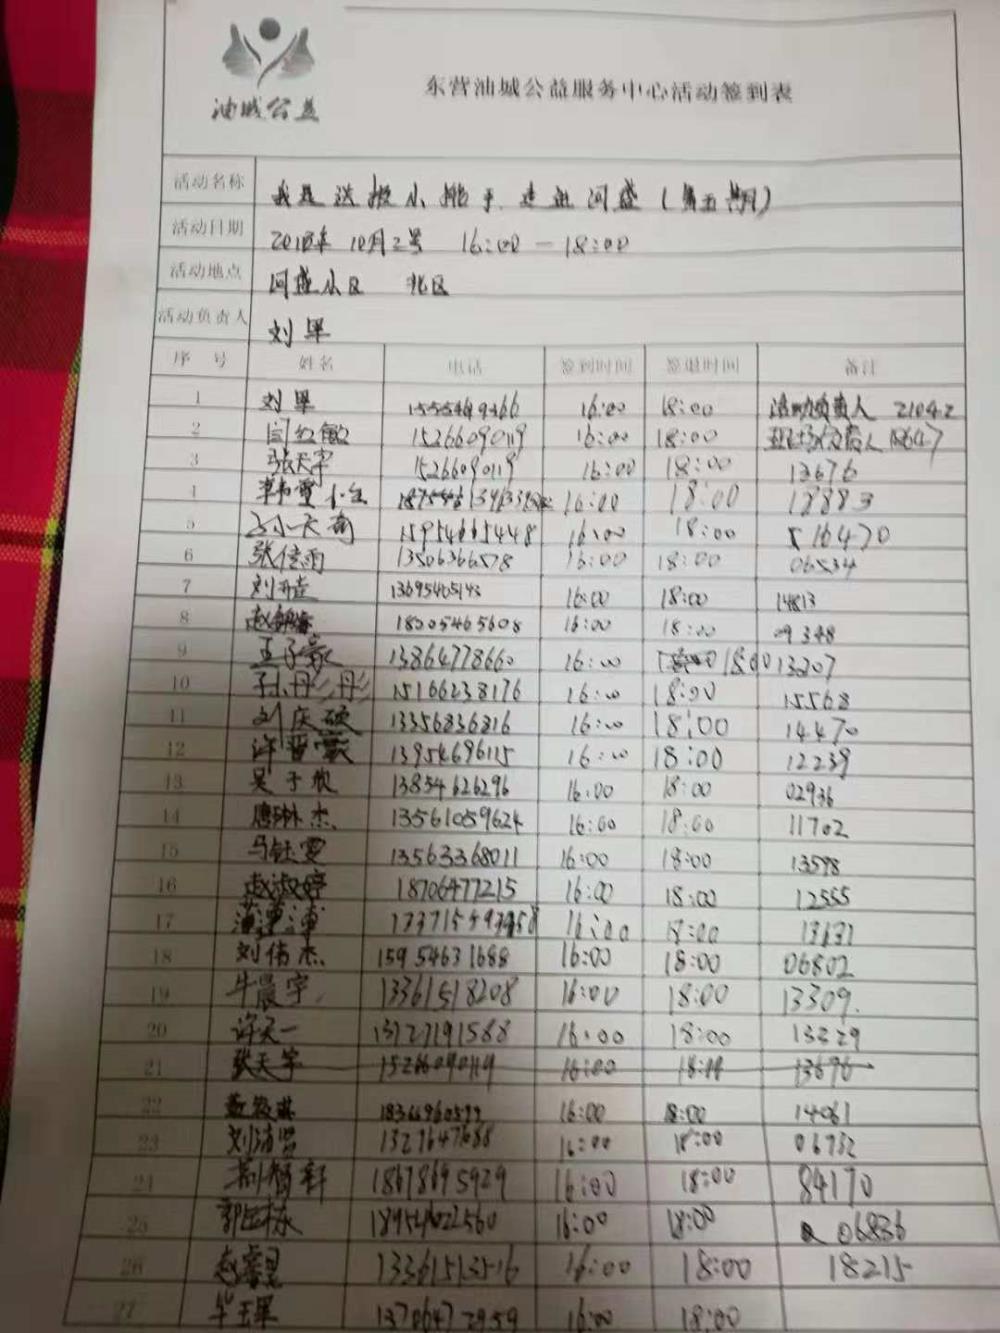 油城公益
东营油城公益服务中心活动签到表
活动名称 我是送报小能手 走进河盛(第五期)
活动日期 2018年10月2号 16:00-18:00
活动地点 河盛小区 北区
活动负责人 刘军
序号 姓名 电话 签到时间 签退时间 备注
1 刘军 16:00 18:00 活动负责人 21042
2 闫红敏 15266090119 16:00 18:00 现场负责人
3 张天宇 15266090119 16:00 18:00 13676
16:00 18:00 18883
5 15954665448 16:00 18:00 516470
6 张佳雨 13506366578 16:00 18:00 06534
7 13695465143 16:00 18:00 14813
8 18205465608 16:00 18:00 09348
9 王子豪 13864778660 16:00 18:00 13207
10 孙丹彤 15166238176 16:00 18:00 15568
11 刘庆硕 13356836816 16:00 18:00 14470
12 许晋豪 13954696115 16:00 18:00 12239
13 吴子欣 13854626296 16:00 18:00 02936
14 杰 13561059624 16:00 18:00 11702
15 马钰雯 13563368011 16:00 18:00 13598
16 赵淑婷 18706477215 16:00 18:00 12555
17 16:00 18:00 13131
18 刘伟杰 15954631688 16:00 18:00 06802
19 牛晨宇 13361518208 16:00 18:00 13309
20 许天一 13727191588 16:00 18:00 13329
21 张天宇 15266090119 16:00 13676
22 18366960599 16:00 18:00 14061
23 16:00 18:00 06732
24 18678695929 16:00 18:00 84170
25 18954022560 16:00 18:00 06836
26 赵睿昊 13361513516 16:00 18:00 18215
27 13706472959 16:00 18:00